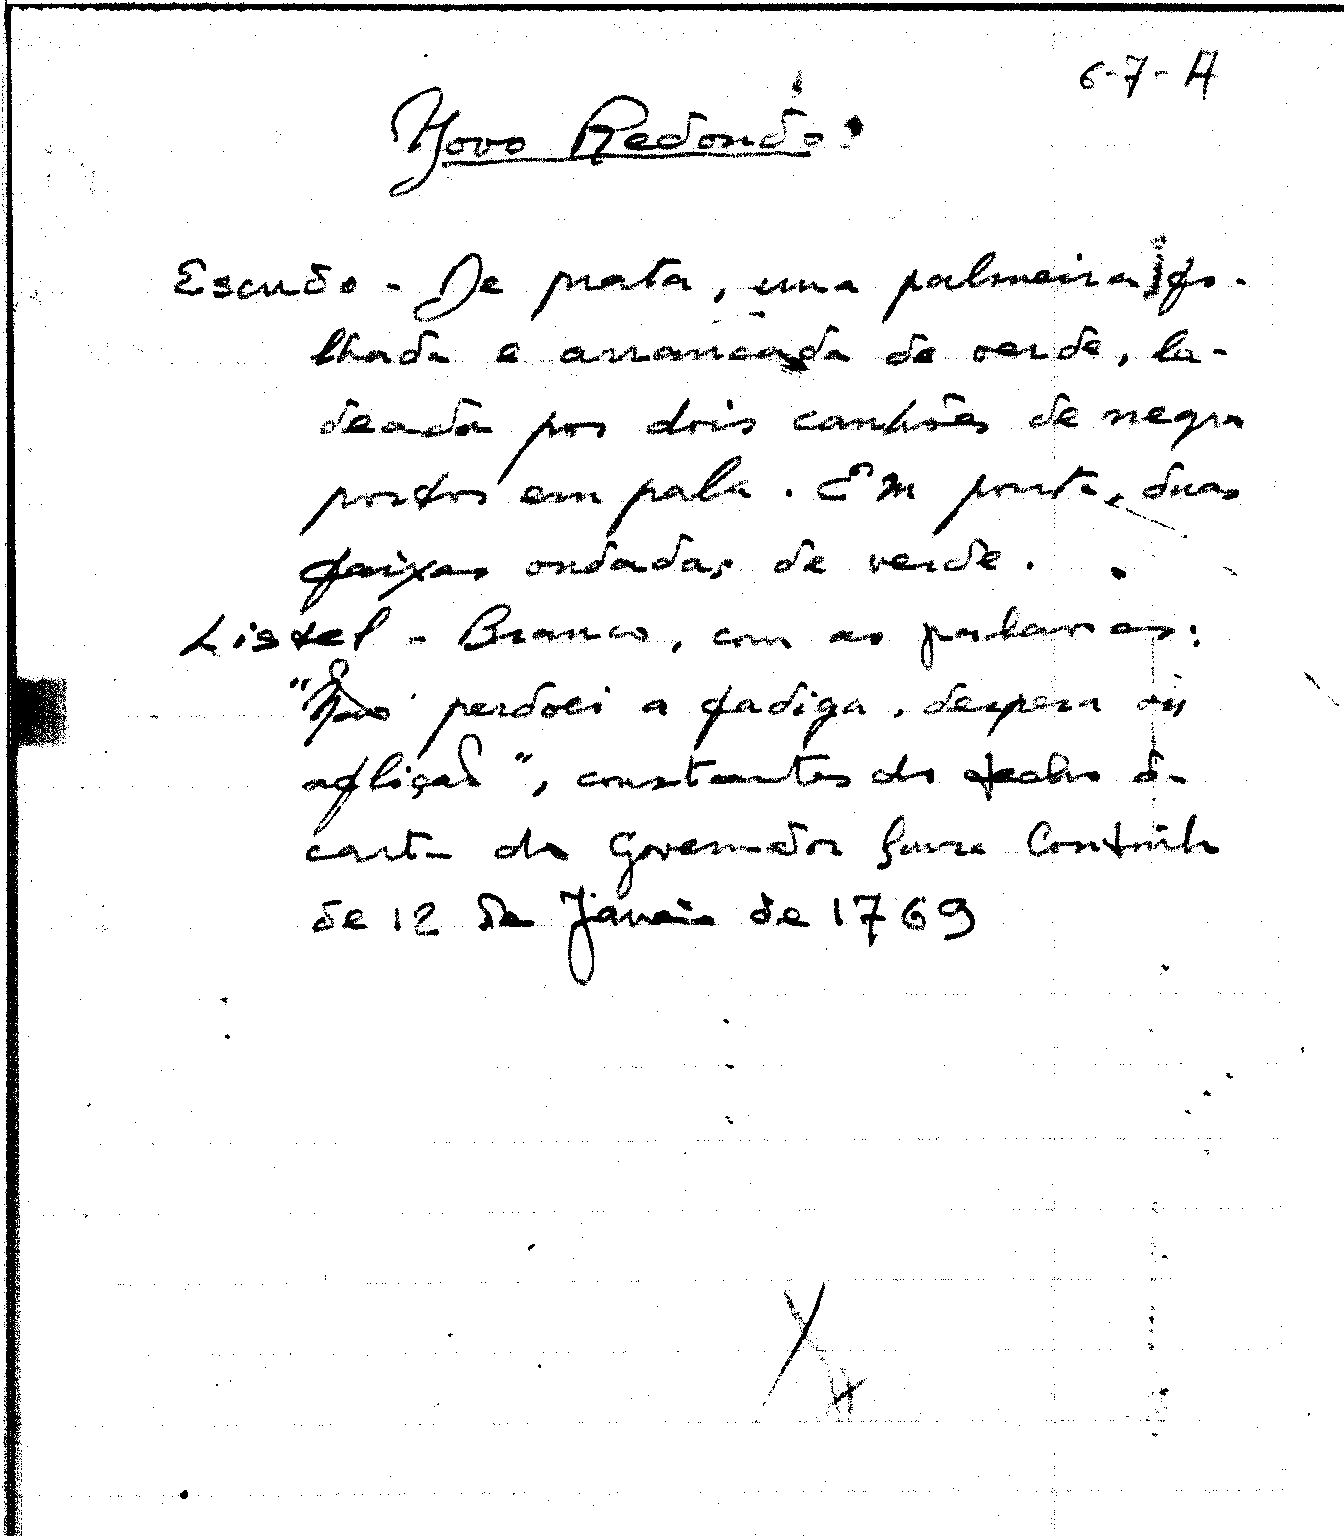 6-7-A
Novo Redondo
Escudo - De prata, uma palmeira fo-
lhada e arrancada de verde, la-
deada por dois canhões de negro
postos em pala. Em ponta, duas
faixas ondadas de verde.
Listel - Branco, com as palavras:
"Não perdoei a fadiga, despesa ou
aflição", constantes do fecho da
carta do Governador Sousa Coutinho
de 12 de Janeiro de 1769